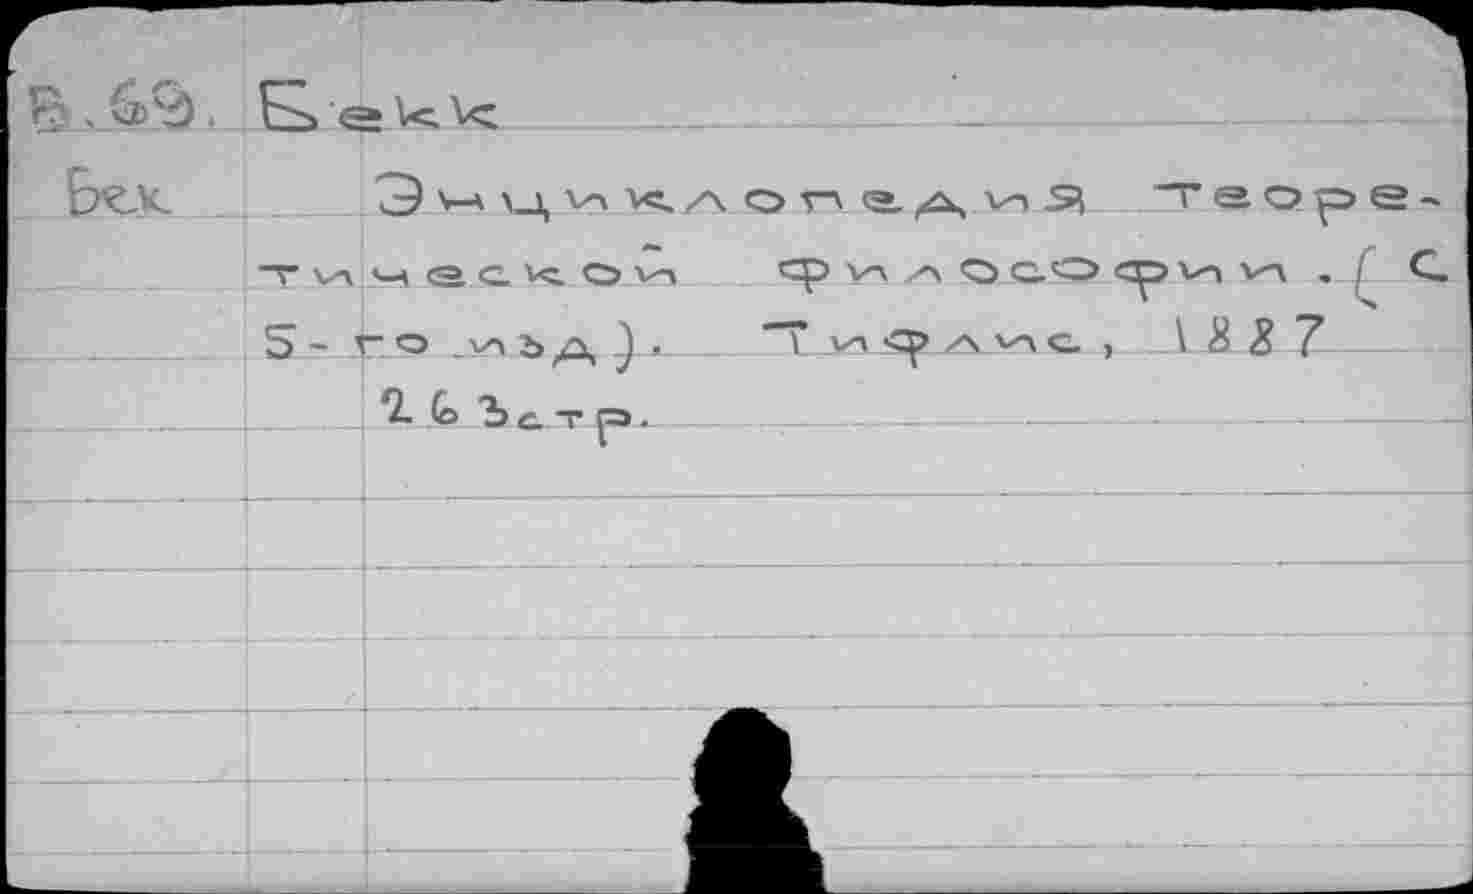 В.69. Бекк
Бек Энциклопедия теоре-
тической философии. (С
5-го изд). Тифлис, 1887
263стр.